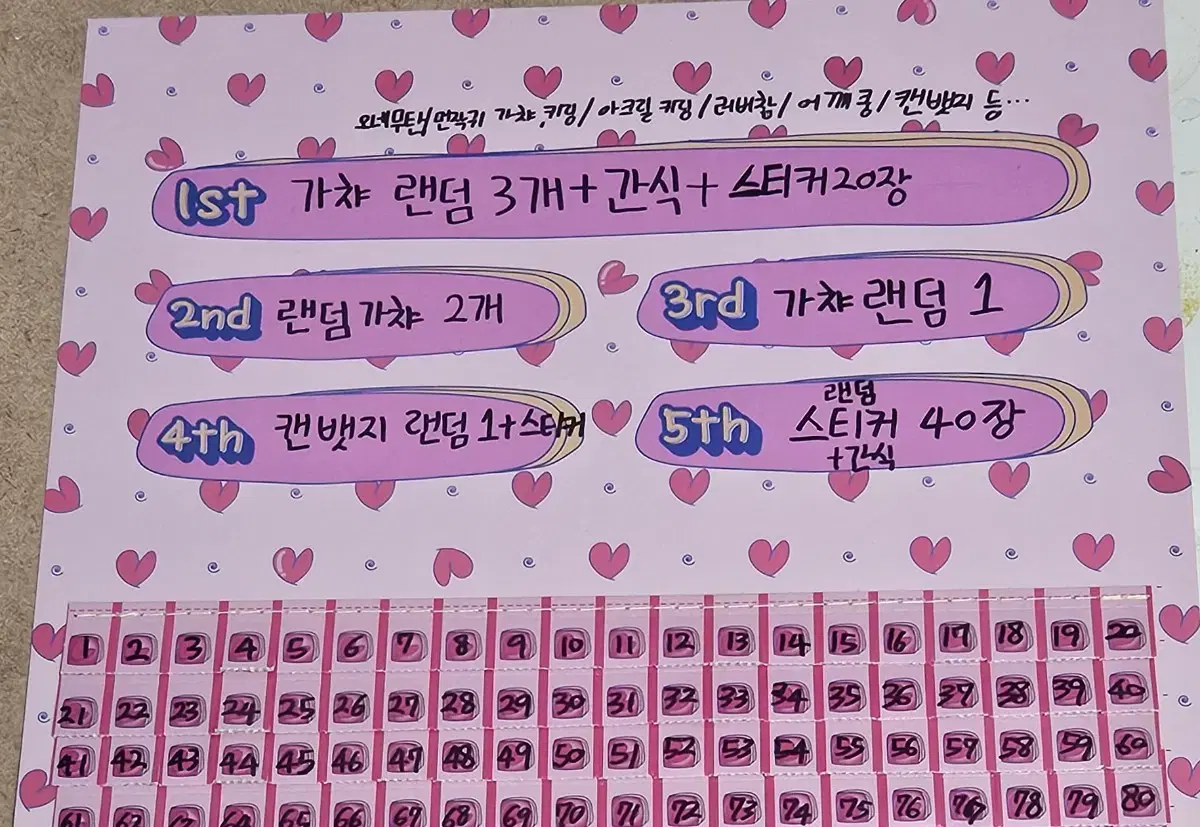 오네무탄/먼작귀 가챠.키링/아크릴 키링/러버참/어깨쿵/캔뱃지 등...
1st 가챠 랜덤 3개+간식+스티커20장
2nd 랜덤가챠 2개
3rd 가챠랜덤 1
4th 캔뱃지 랜덤 1+스티커
5th 랜덤 스티커 40장 +간식
1 2 3 4 5 6 7 8 9 10 11 12 13 14 15 16 17 18 19 20
21 22 23 24 25 26 27 28 29 30 31 32 33 34 35 36 37 38 39 40
41 42 43 44 45 46 47 48 49 50 51 52 53 54 55 56 57 58 59 60
61 62 63 64 65 66 67 68 69 70 71 72 73 74 75 76 76 78 79 80